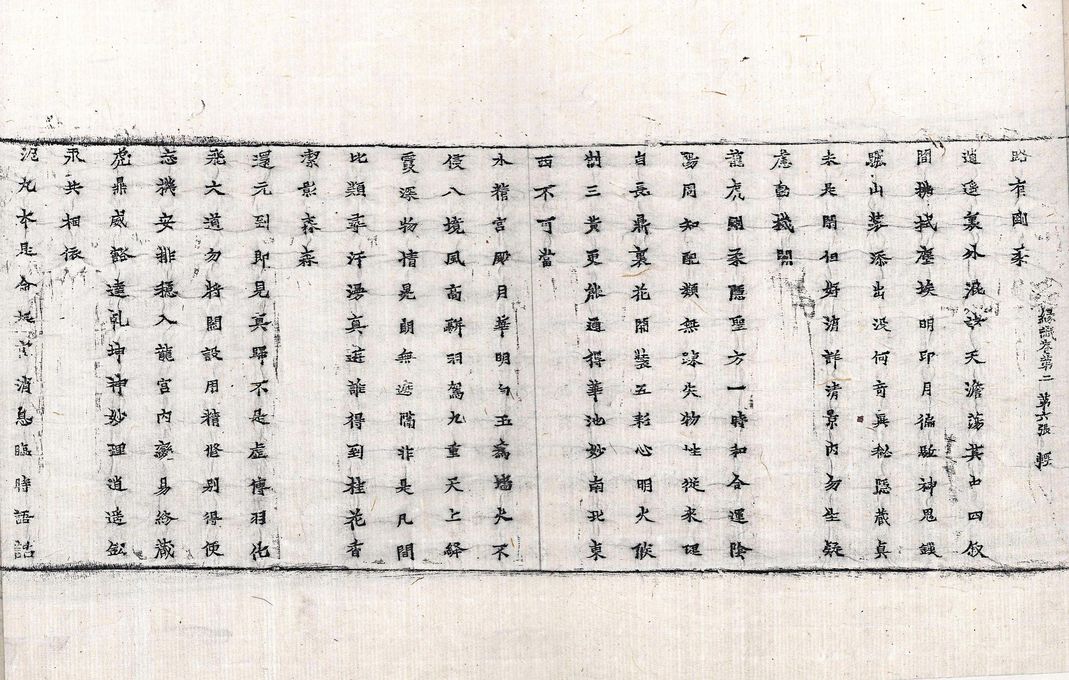 緣識卷第二 第六張 輕
路有剛柔
逍遙裏外混沌天澹蕩其由四叙
間揩拭塵埃明印月徧歐神鬼鐵
驅山夢添出沒何奇異松隱藏真
未是閑但好消詳清景內勿生疑
慮自機關
龍虎剛柔隱聖方一時和合運陰
陽周知配類無蹤失物性從來理
自長鼎裏花開裝五彩心明火候
制三黃更能通得華池妙南北東
西不可當
水精宮殿月華明白玉為墻火不
侵八境風高輧羽駕九重天上辭
霞深物情晃朗無遮隔非是凡間
比類尋汗漫真遊誰得到桂花香
潔影森森
還元到即見真歸不是虛傳羽化
飛大道勿將閑設用精修別得便
忘機安排穩入龍宮內變易終藏
虎鼎威豁達乾坤神妙理逍遙鈆
汞共相依
泥丸本是命消息臨時語話